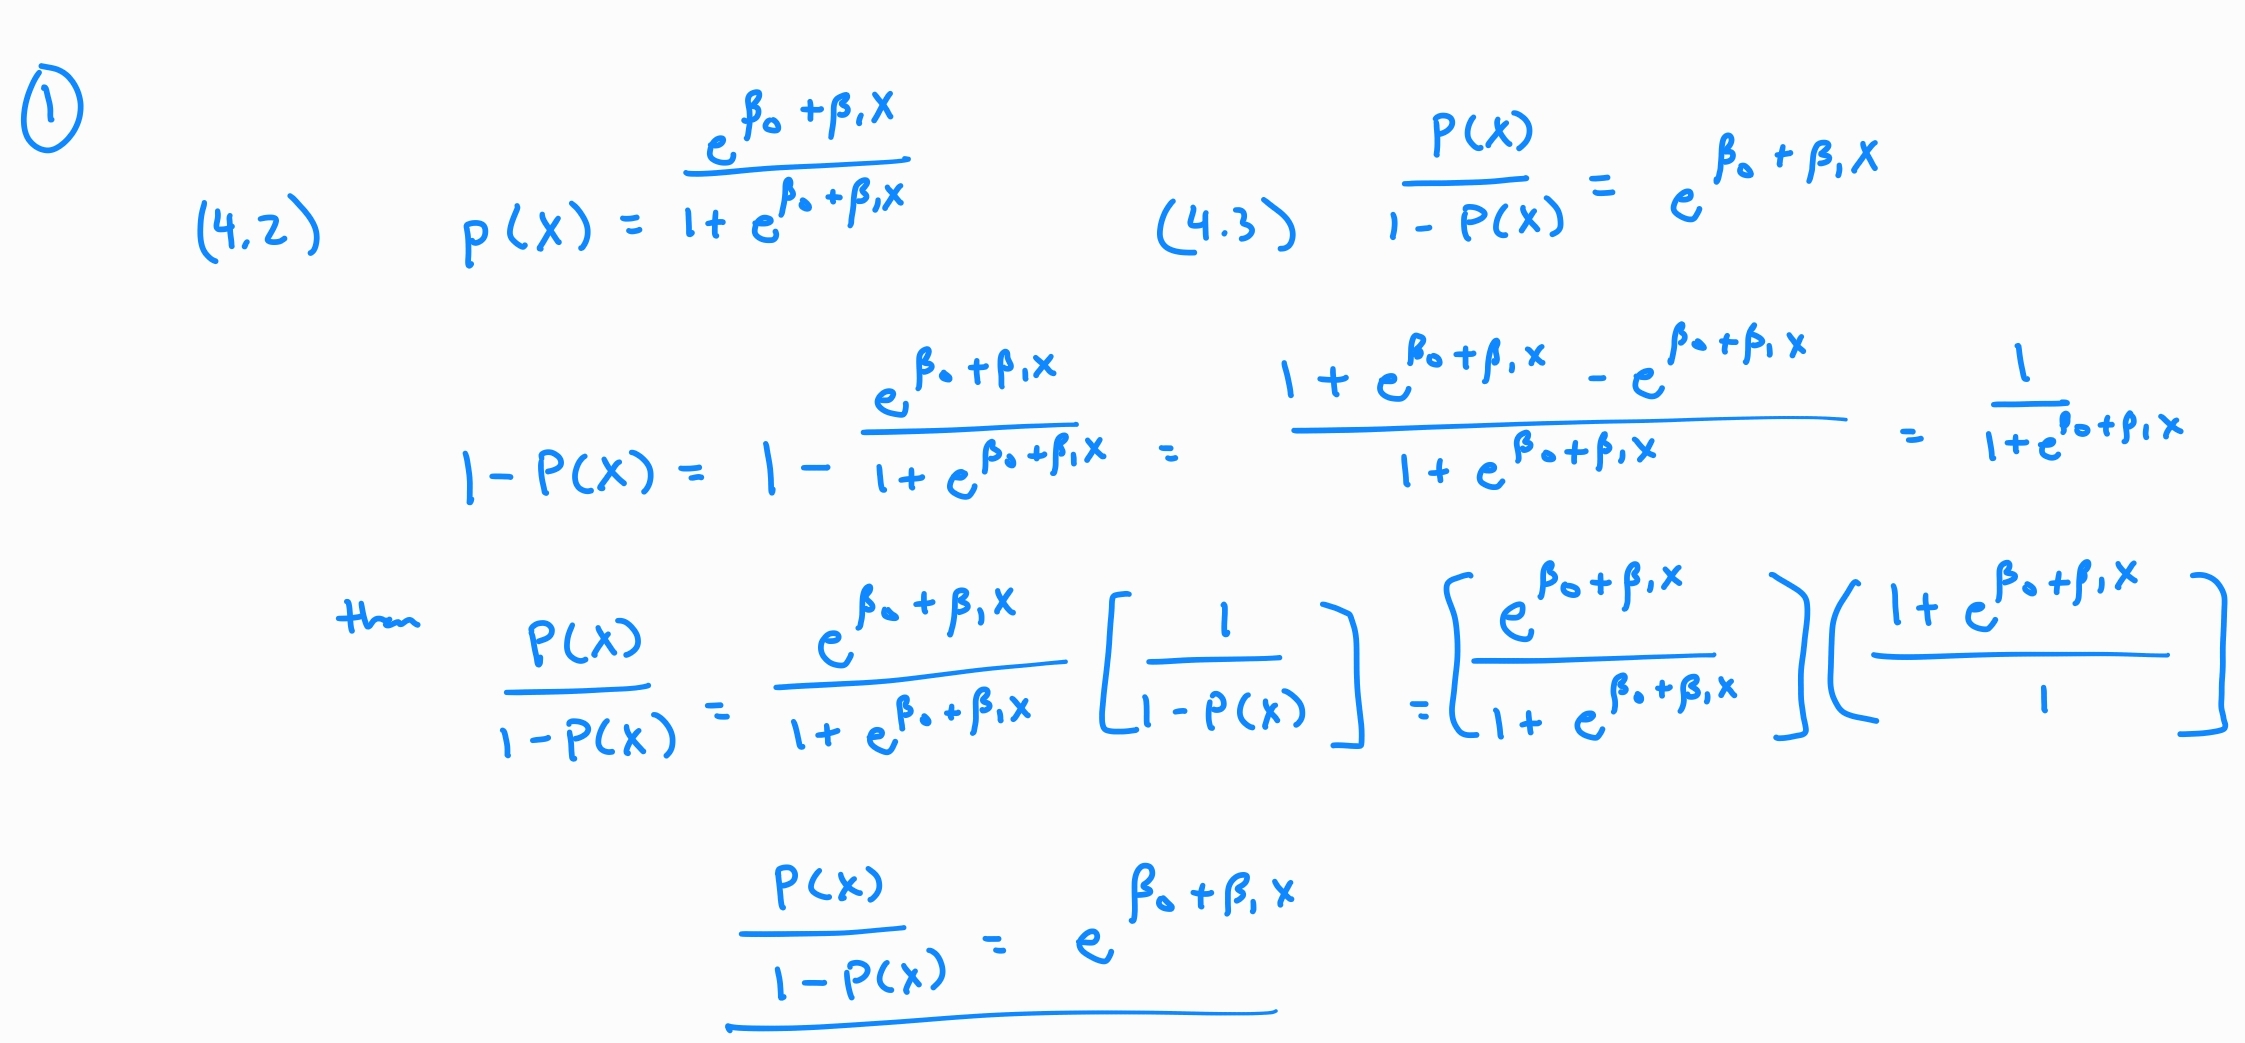 ①
(4.2) p(X) = e^{β₀ + β₁X} / (1 + e^{β₀ + β₁X}) (4.3) P(X) / (1 - P(X)) = e^{β₀ + β₁X}
1 - P(X) = 1 - e^{β₀ + β₁X} / (1 + e^{β₀ + β₁X}) = (1 + e^{β₀ + β₁X} - e^{β₀ + β₁X}) / (1 + e^{β₀ + β₁X}) = 1 / (1 + e^{β₀ + β₁X})
P(X) / (1 - P(X)) = e^{β₀ + β₁X} / (1 + e^{β₀ + β₁X}) [1 / (1 - P(X))] = [e^{β₀ + β₁X} / (1 + e^{β₀ + β₁X})] [(1 + e^{β₀ + β₁X}) / 1]
P(X) / (1 - P(X)) = e^{β₀ + β₁X}